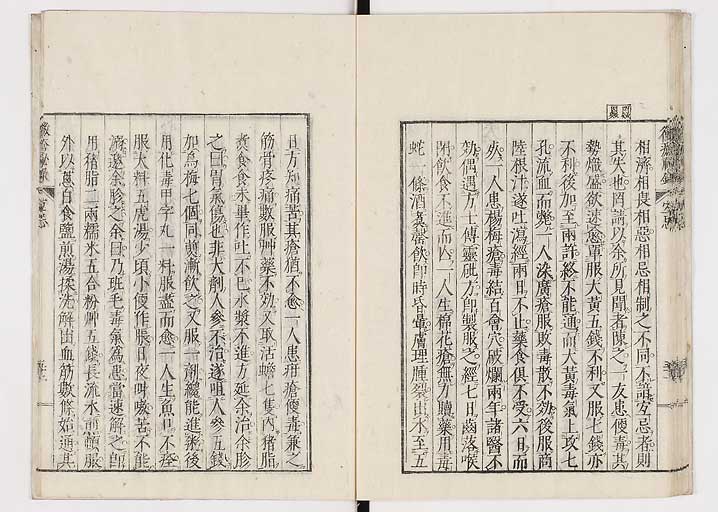 相濟相畏相惡相忌相制之不同不諳宜忌者則
其失也罔請以余所見聞者陳之一友患便毒其
勢熾盛欲速愈單服大黃五錢不利又服七錢亦
不利後加至一兩許終不能通而大黃毒氣上攻七
孔流血而斃一人染廣瘡服敗毒散不効後服商
陸根汁遂吐瀉經兩日不止藥食俱不受六日而
死一人患楊梅瘡毒結百會穴破爛兩年諸醫不
効偶遇方士傳靈砒方即製服之經七日齒落喉
閉飲食不進而一人生棉花瘡無力贖藥用毒
蛇一條酒煮蜜飲即時昏暈膚理腫裂出水至五
日方知痛苦其瘡猶不愈一人患疳瘡便毒兼之
筋骨疼痛數服艸藥不効又取活蟾七隻入豬脂
煮食食未畢作吐不已水漿不進方延余治余診
之曰胃氣傷也非大劑人參不治遂咀人參五錢
加烏梅七個同煎漸飲之又服一劑纔能進粥後
用化毒甲字丸一料服盡而愈一人生魚口不痊
服大料五虎湯少頃小便作脹日夜呌喚苦不能
瀉邀余診之余曰乃班毛毒氣爲患當速解之即
用猪脂二兩糯米五合粉艸五錢長流水煎頓服
外以葱白食鹽煎湯揉洗解出血筋數條始通其